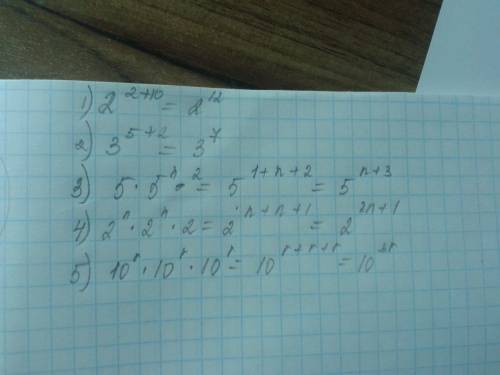 1) 2^{2+10} = 2^{12}
2) 3^{5+2} = 3^{7}
3) 5 · 5^{n} · ^{2} = 5^{1+n+2} = 5^{n+3}
4) 2^{n} · 2^{n} · 2 = 2^{n+n+1} = 2^{2n+1}
5) 10^{r} · 10^{r} · 10^{r} = 10^{r+r+r} = 10^{3r}